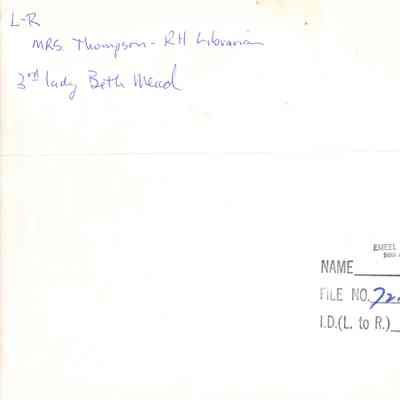 L-R
MRS. Thompson - RH Librarian
3rd lady Beth Mead
EMEEL
NAME
FILE NO. 72
I.D.(L. to R.)